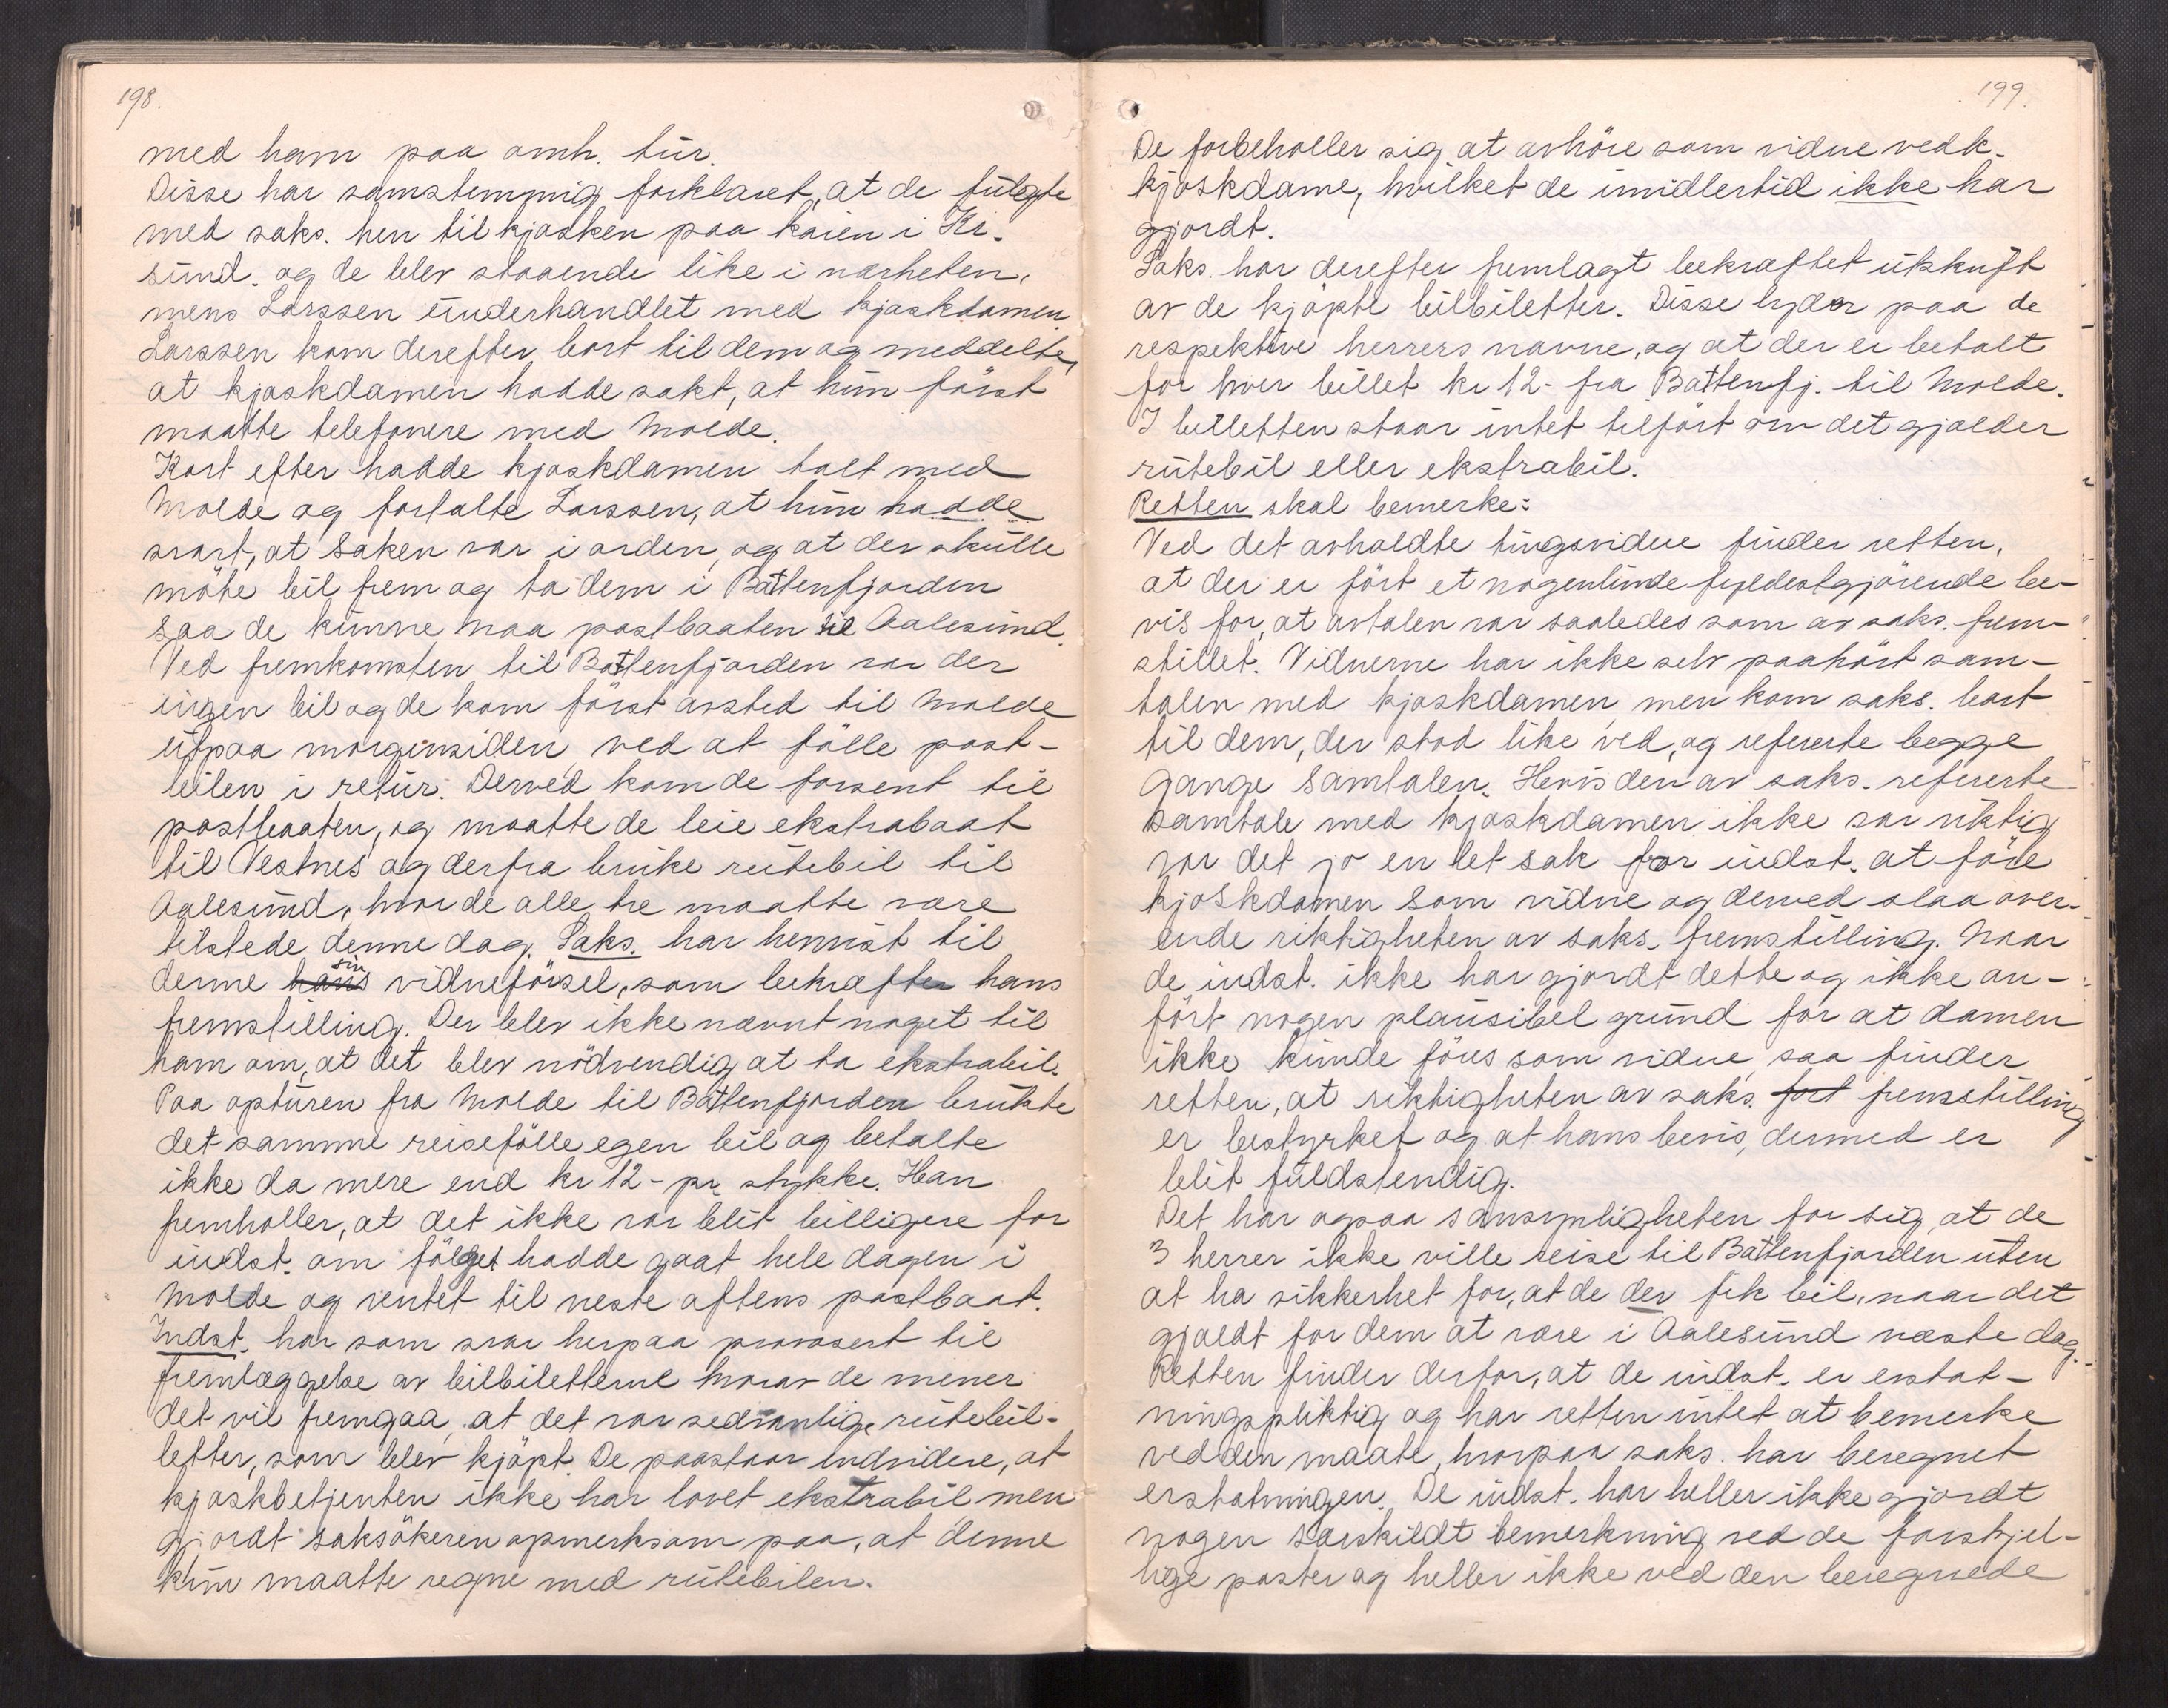 198.
med ham paa omh. tur.
Disse har samstemmig forklaret, at de fulgte
med saks. hen til kjosken paa kaien i Kr.
sund. og de blev staaende like i nærheten,
mens Larssen underhandlet med kjoskdamen.
Larssen kom derefter bort til dem og meddelte,
at kjoskdamen hadde sakt, at hun først
maatte telefonere med Molde.
Kort efter hadde kjoskdamen talt med
Molde og fortalte Larssen, at hun hadde
svart, at saken var i orden, og at der skulle
møte bil frem og ta dem i Battenfjorden
saa de kunne naa postbaaten til Aalesund.
Ved fremkomsten til Battenfjorden var der
ingen bil og de kom først avsted til Molde
utpaa morgensiden ved at følle post-
bilen i retur. Derved kom de forsent til
postbaaten, og maatte de leie ekstrabaat
til Vestnes og derfra bruke rutebil til
Aalesund, hvor de alle tre maatte være
tilstede denne dag. Saks. har henvist til
denne hans sin vidneførsel, som bekræfter hans
fremstilling. Der blev ikke nævnt noget til
ham om, at det blev nødvendig at ta ekstrabil.
Paa opturen fra Molde til Battenfjorden brukte
det samme reisefølle egen bil og betalte
ikke da mere end kr 12- pr stykke. Han
fremholler, at det ikke var blit billigere for
indst. om følget hadde gaat hele dagen i
Molde og ventet til neste aftens postbaat.
Indst. har som svar herpaa provosert til
fremlæggelse av bilbiletterne hvorav de mener
det vil fremgaa, at det var sedvanlige rutebil-
letter, som blev kjøpt. De paastaar endvidere, at
kjoskbetjenten ikke har lovet ekstrabil men
gjordt saksøkeren opmerksom paa, at denne
kun maatte regne med rutebilen.
199.
De forbeholler sig at avhøre som vidne vedk.
kjoskdame, hvilket de imidlertid ikke har
gjordt.
Saks. har derefter fremlagt bekræftet utskrift
av de kjøpte bilbiletter. Disse lyder paa de
respektive herrers navne, og at der er betalt
for hver billet kr 12- fra Battenfj. til Molde.
I billetten staar intet tilført om det gjælder
rutebil eller ekstrabil.
Retten skal bemerke:
Ved det avholdte tingsvidne finder retten,
at der er ført et nogenlunde fyldestgjørende be-
vis for, at avtalen var saaledes som av saks. frem-
stillet. Vidnerne har ikke selv paahørt sam-
talen med kjoskdamen, men kom saks. bort
til dem, der stod like ved, og refererte begge
gange samtalen. Hvis den av saks. refererte
samtale med kjoskdamen ikke var riktig
var det jo en let sak for indst. at føre
kjoskdamen som vidne og derved slaa over-
ende riktigheten av saks. fremstilling. Naar
de indst. ikke har gjordt dette og ikke an-
ført nogen plausibel grund for at damen
ikke kunde føres som vidne, saa finder
retten, at riktigheten av saks. fort fremstilling
er bestyrket og at hans bevis, dermed er
blit fuldstendig.
Det har ogsaa sansynligheten for sig, at de
3 herrer ikke ville reise til Battenfjorden uten
at ha sikkerhet for, at de der fik bil, naar det
gjaldt for dem at være i Aalesund næste dag.
Retten finder derfor, at de indst. er erstat-
ningspliktig og har retten intet at bemerke
ved den maate, hvorpaa saks. har beregnet
erstatningen. De indst. har heller ikke gjordt
nogen særskildt bemerkning ved de forskjel-
lige poster og heller ikke ved den beregnede